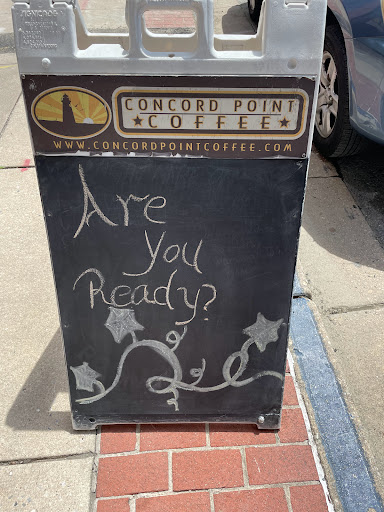 CONCORD POINT
COFFEE
WWW.CONCORDPOINTCOFFEE.COM
Are
You
Ready?